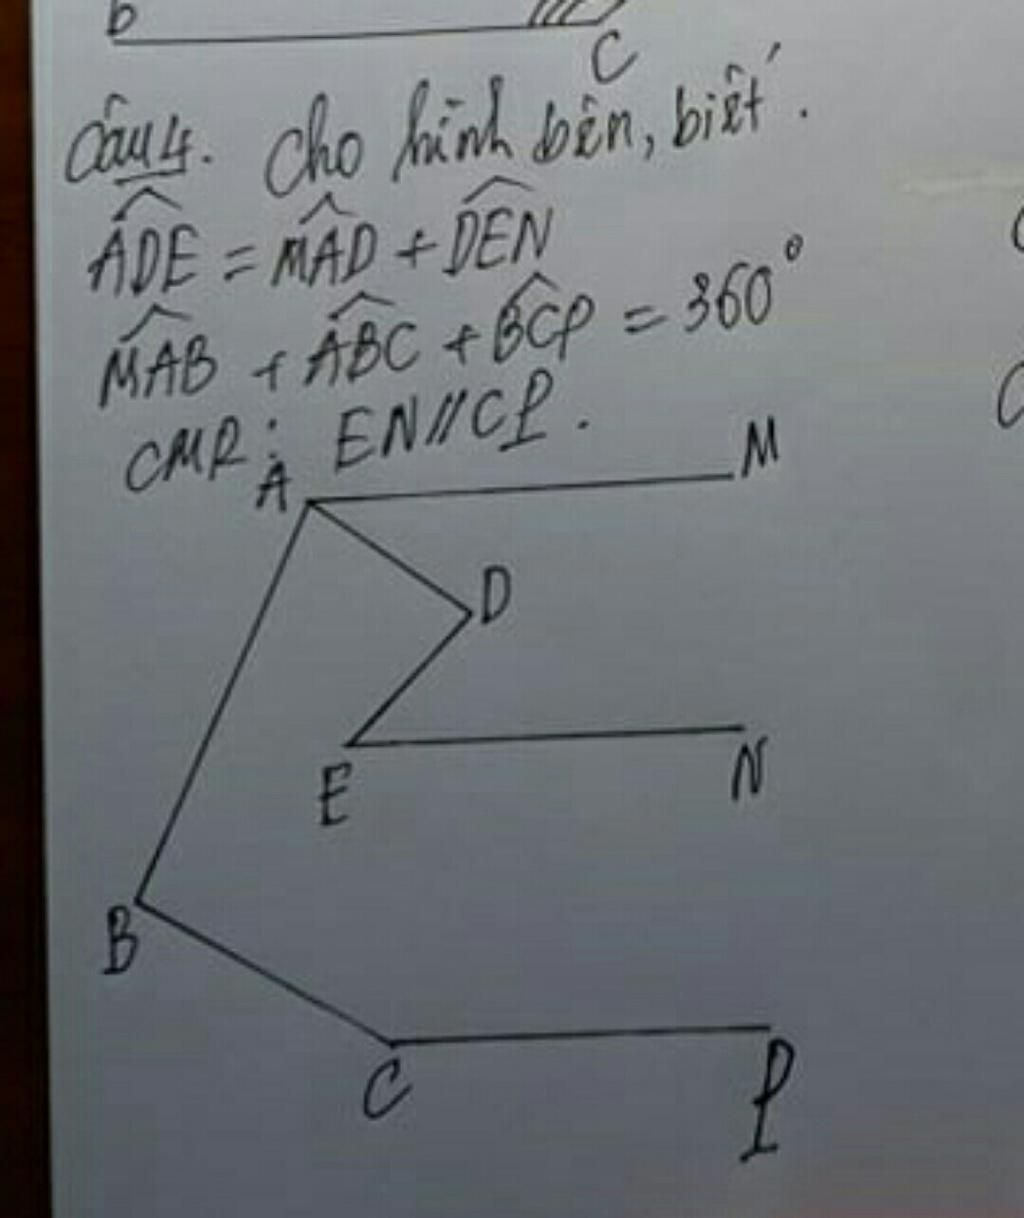 b
C
Câu 4. Cho hình bên, biết.
ADE = MAD + DEN
MAB + ABC + BCP = 360°
CMR: EN // CP.
A
M
D
E
N
B
C
P